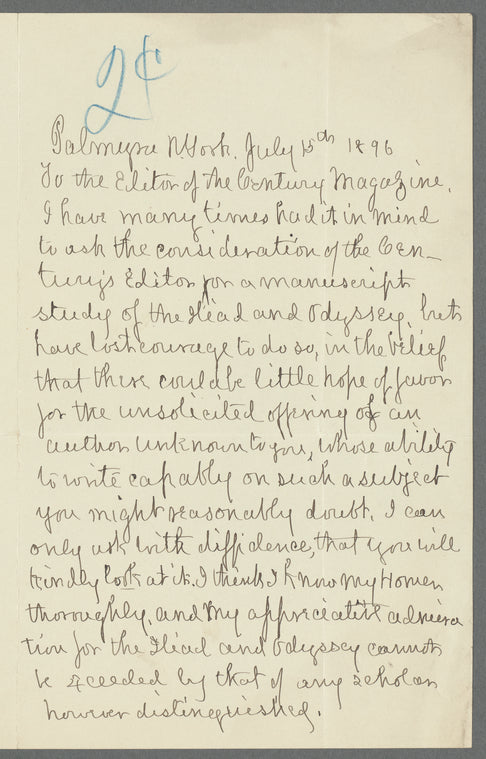 2¢
Palmyra N.York. July 15th 1896
To the Editor of the Century Magazine.
I have many times had it in mind
to ask the consideration of the Cen-
tury's Editor for a manuscript
study of the Iliad and Odyssey, but
have lost courage to do so, in the belief
that there could be little hope of favor
for the unsolicited offering of an
author unknown to you, whose ability
to write capably on such a subject
you might reasonably doubt. I can
only ask with diffidence, that you will
kindly look at it. I think I know my Homer
thoroughly, and my appreciative admira
tion for the Iliad and Odyssey cannot
be exceeded by that of any scholar
however distinguished.